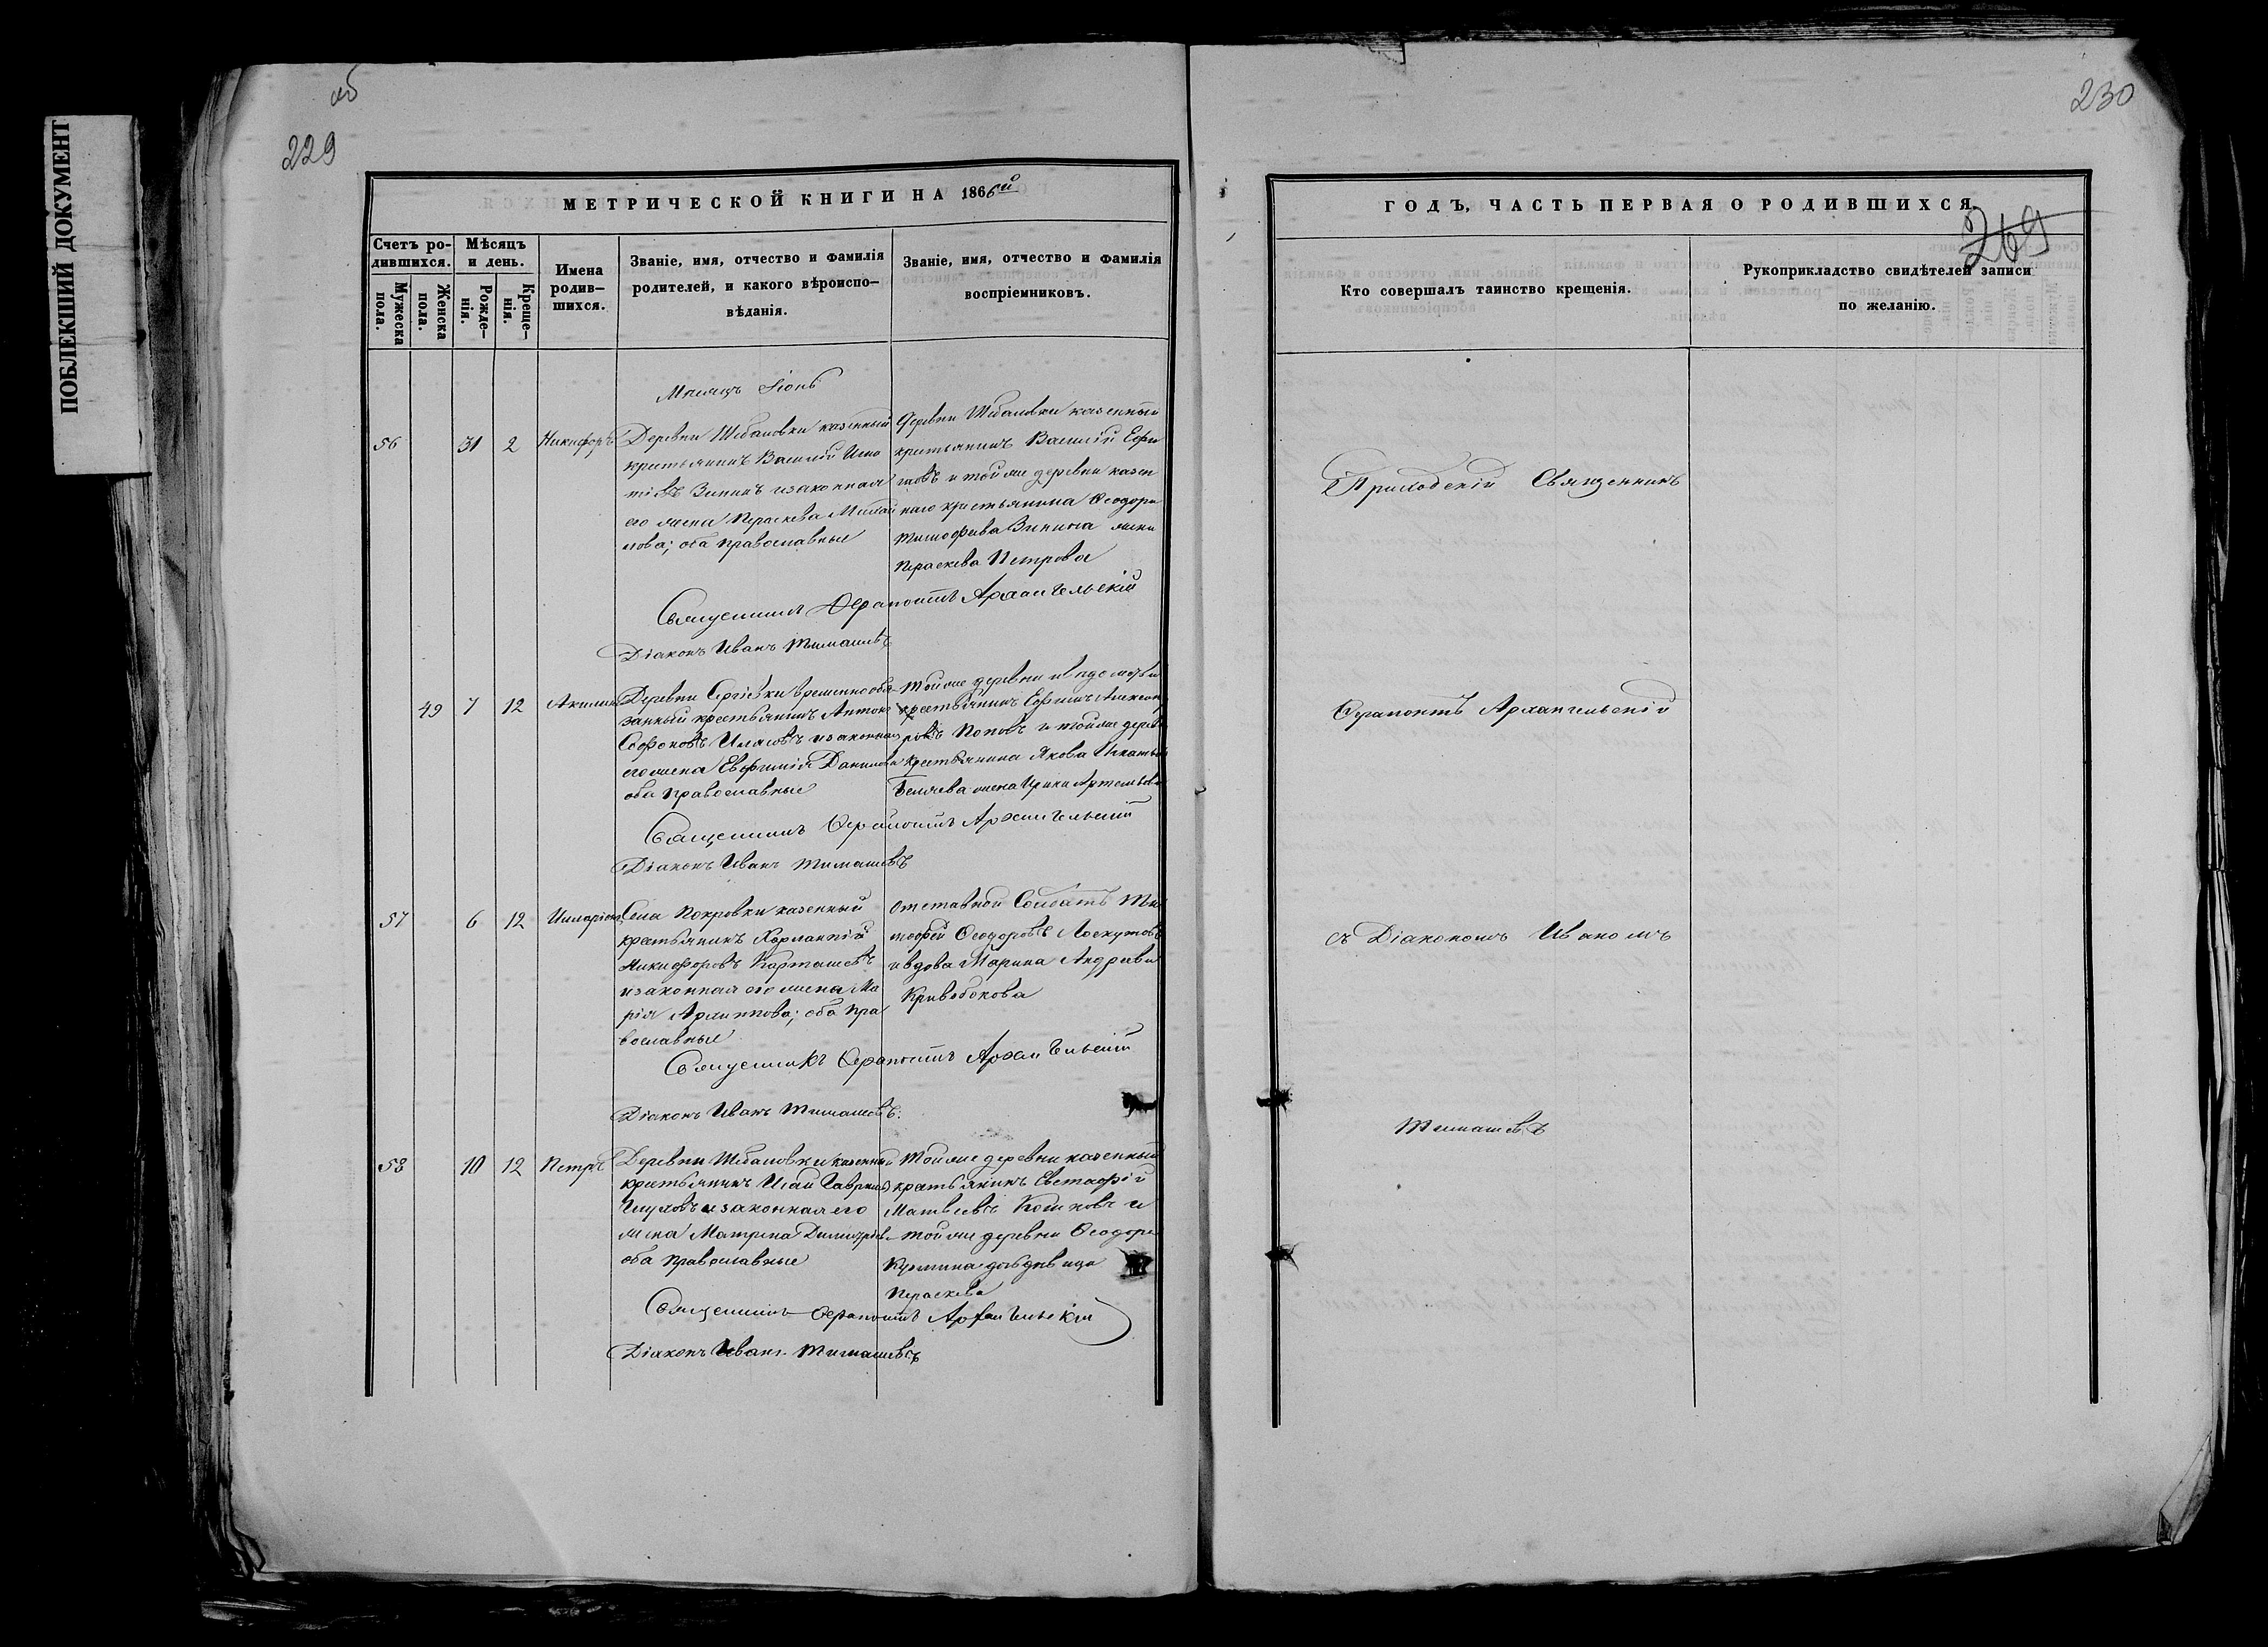 ПОБЛЕКШИЙ ДОКУМЕНТ
об
229
МЕТРИЧЕСКОЙ КНИГИ НА 1866й
Счетъ ро-
дившихся.
Мѣсяцъ
и день.
Имена
родив-
шихся.
Званіе, имя, отчество и фамилія
родителей, и какого вѣроиспо-
вѣданія.
Званіе, имя, отчество и фамилія
воспріемниковъ.
Мужеска
пола.
Женска
пола.
Рожде-
нія.
Креще-
нія.
Мѣсяцъ Іюнь
56 31 2 Никифоръ
Деревни казенный
крестьянинъ Василій
Зининъ и законная
его жена Параскева
оба православные
Деревни казенный
крестьянинъ Василій Ефи
мовъ и той же деревни казен
наго крестьянина Ѳеодора
Тимофеева Зинина жена
Параскева Петрова
Священникъ Ѳерапонтъ Архангельскій
Діаконъ Иванъ Тимашевъ
49 7 12 Акилина
Деревни Сергіевки временнообя
занный крестьянинъ Антонъ
Софоновъ и законная
его жена Евфимія Данилова
оба православные
Той же деревни
крестьянинъ Ефимъ Александ
ровъ Поповъ и той же дерев
крестьянина Якова
Беляева жена Ирина Артемьева
Священникъ Ѳерапонтъ Архангельскій
Діаконъ Иванъ Тимашевъ
57 6 12 Иларіонъ
Села Покровки казенный
крестьянинъ Харлампій
Никифоровъ Карташевъ
и законная его жена Ма
рія Архиппова; оба пра
вославные
Отставной Солдатъ Ти
мофей Ѳеодоровъ Лоскутовъ
и вдова Марина Андреева
Кривобокова
Священникъ Ѳерапонтъ Архангельскій
Діаконъ Иванъ Тимашевъ:
58 10 12 Петръ
Деревни казенный
крестьянинъ Исай Гаврил
и законная его
жена Матрена Димитріев
оба православные
Той же деревни казенный
крестьянинъ Евстафій
Матвеевъ и
той же деревни Ѳеодора
Кузмина дочь девица
Параскева
Священникъ Ѳерапонтъ Архангельскій
Діаконъ Иванъ Тимашевъ
230
ГОДЪ, ЧАСТЬ ПЕРВАЯ О РОДИВШИХСЯ.
269
Кто совершалъ таинство крещенія.
Рукоприкладство свидѣтелей записи
по желанію.
Приходскій Священникъ
Ѳерапонтъ Архангельскій
съ Діакономъ Иваномъ
Тимашевъ